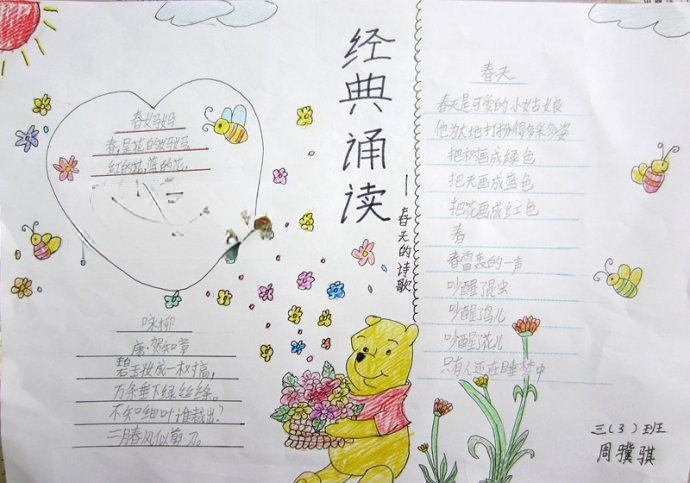 经典诵读
——春天的诗歌
春妈妈
春,是花的妈妈。
红的花,蓝的花,
咏柳
唐·贺知章
碧玉妆成一树高,
万条垂下绿丝绦。
不知细叶谁裁出?
二月春风似剪刀。
春天
春天是可爱的小姑娘
他放大地打扮得多采多姿
把树画成绿色
把天画成蓝色
把花画成红色
春
春雷轰的一声
吵醒昆虫
吵醒鸟儿
吵醒花儿
只有人还在睡梦中
三(3)班
周骥骐